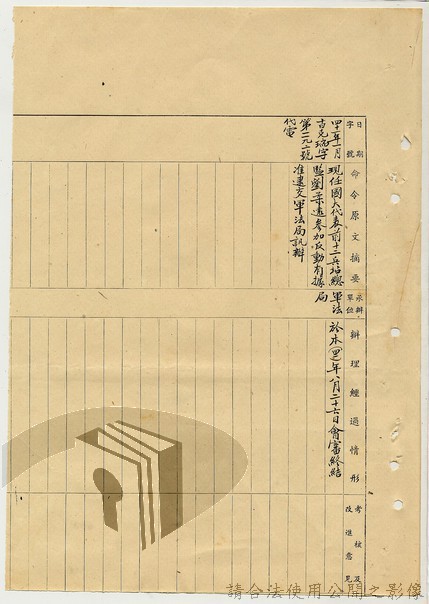 日期
字號
命令原文摘要
承辦
單位
辦理經過情形
考核及
改進意見
四十年一月
吉
字
第二九一號
代電
現任國大代表前十二兵站總
監劉業遠參加反動有據
准逮交軍法局訊辦
軍法
局
於本(四)年八月二十六日會審終結
請合法使用公開之影像